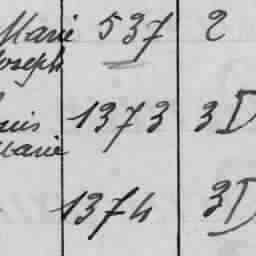 Marie 537 2
Joseph
Louis 1373 3D
Marie
1374 3D